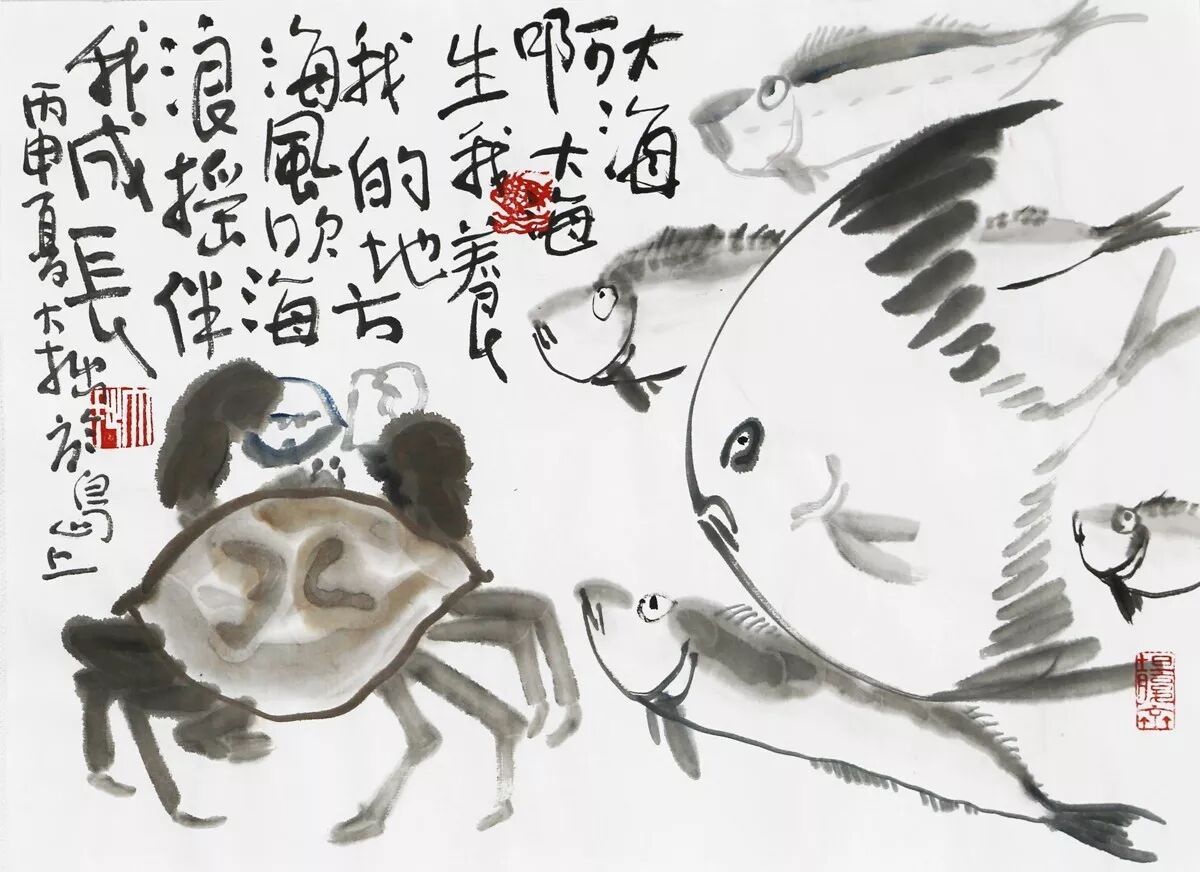 大海
啊大海
生我養
我的地方
海風吹海
浪摇伴
我成長
丙申夏大拙於島上